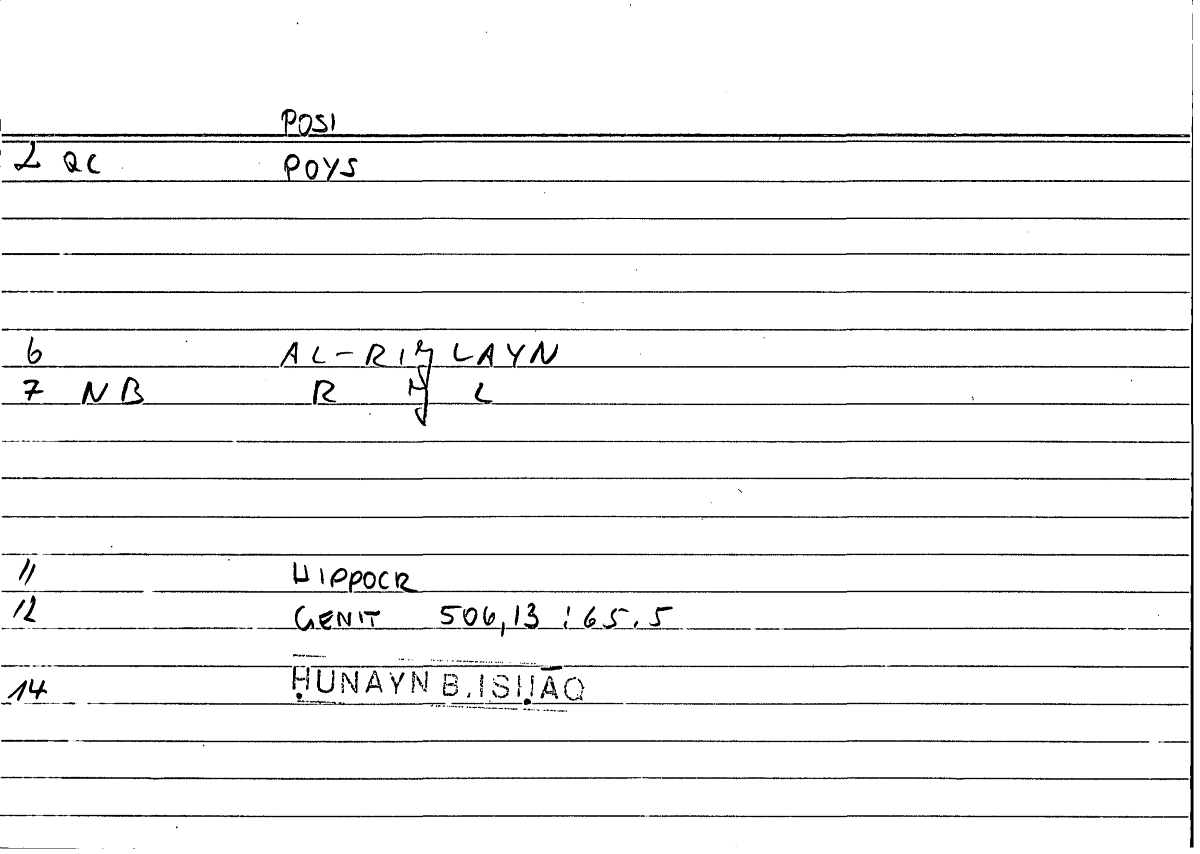 POSI
2 QC POYS
6 AL-RIǧLAYN
7 NB R ǧ L
11 HIPPOCR
12 GENIT 506,13 : 65.5
14 ḤUNAYN B. ISḤĀQ